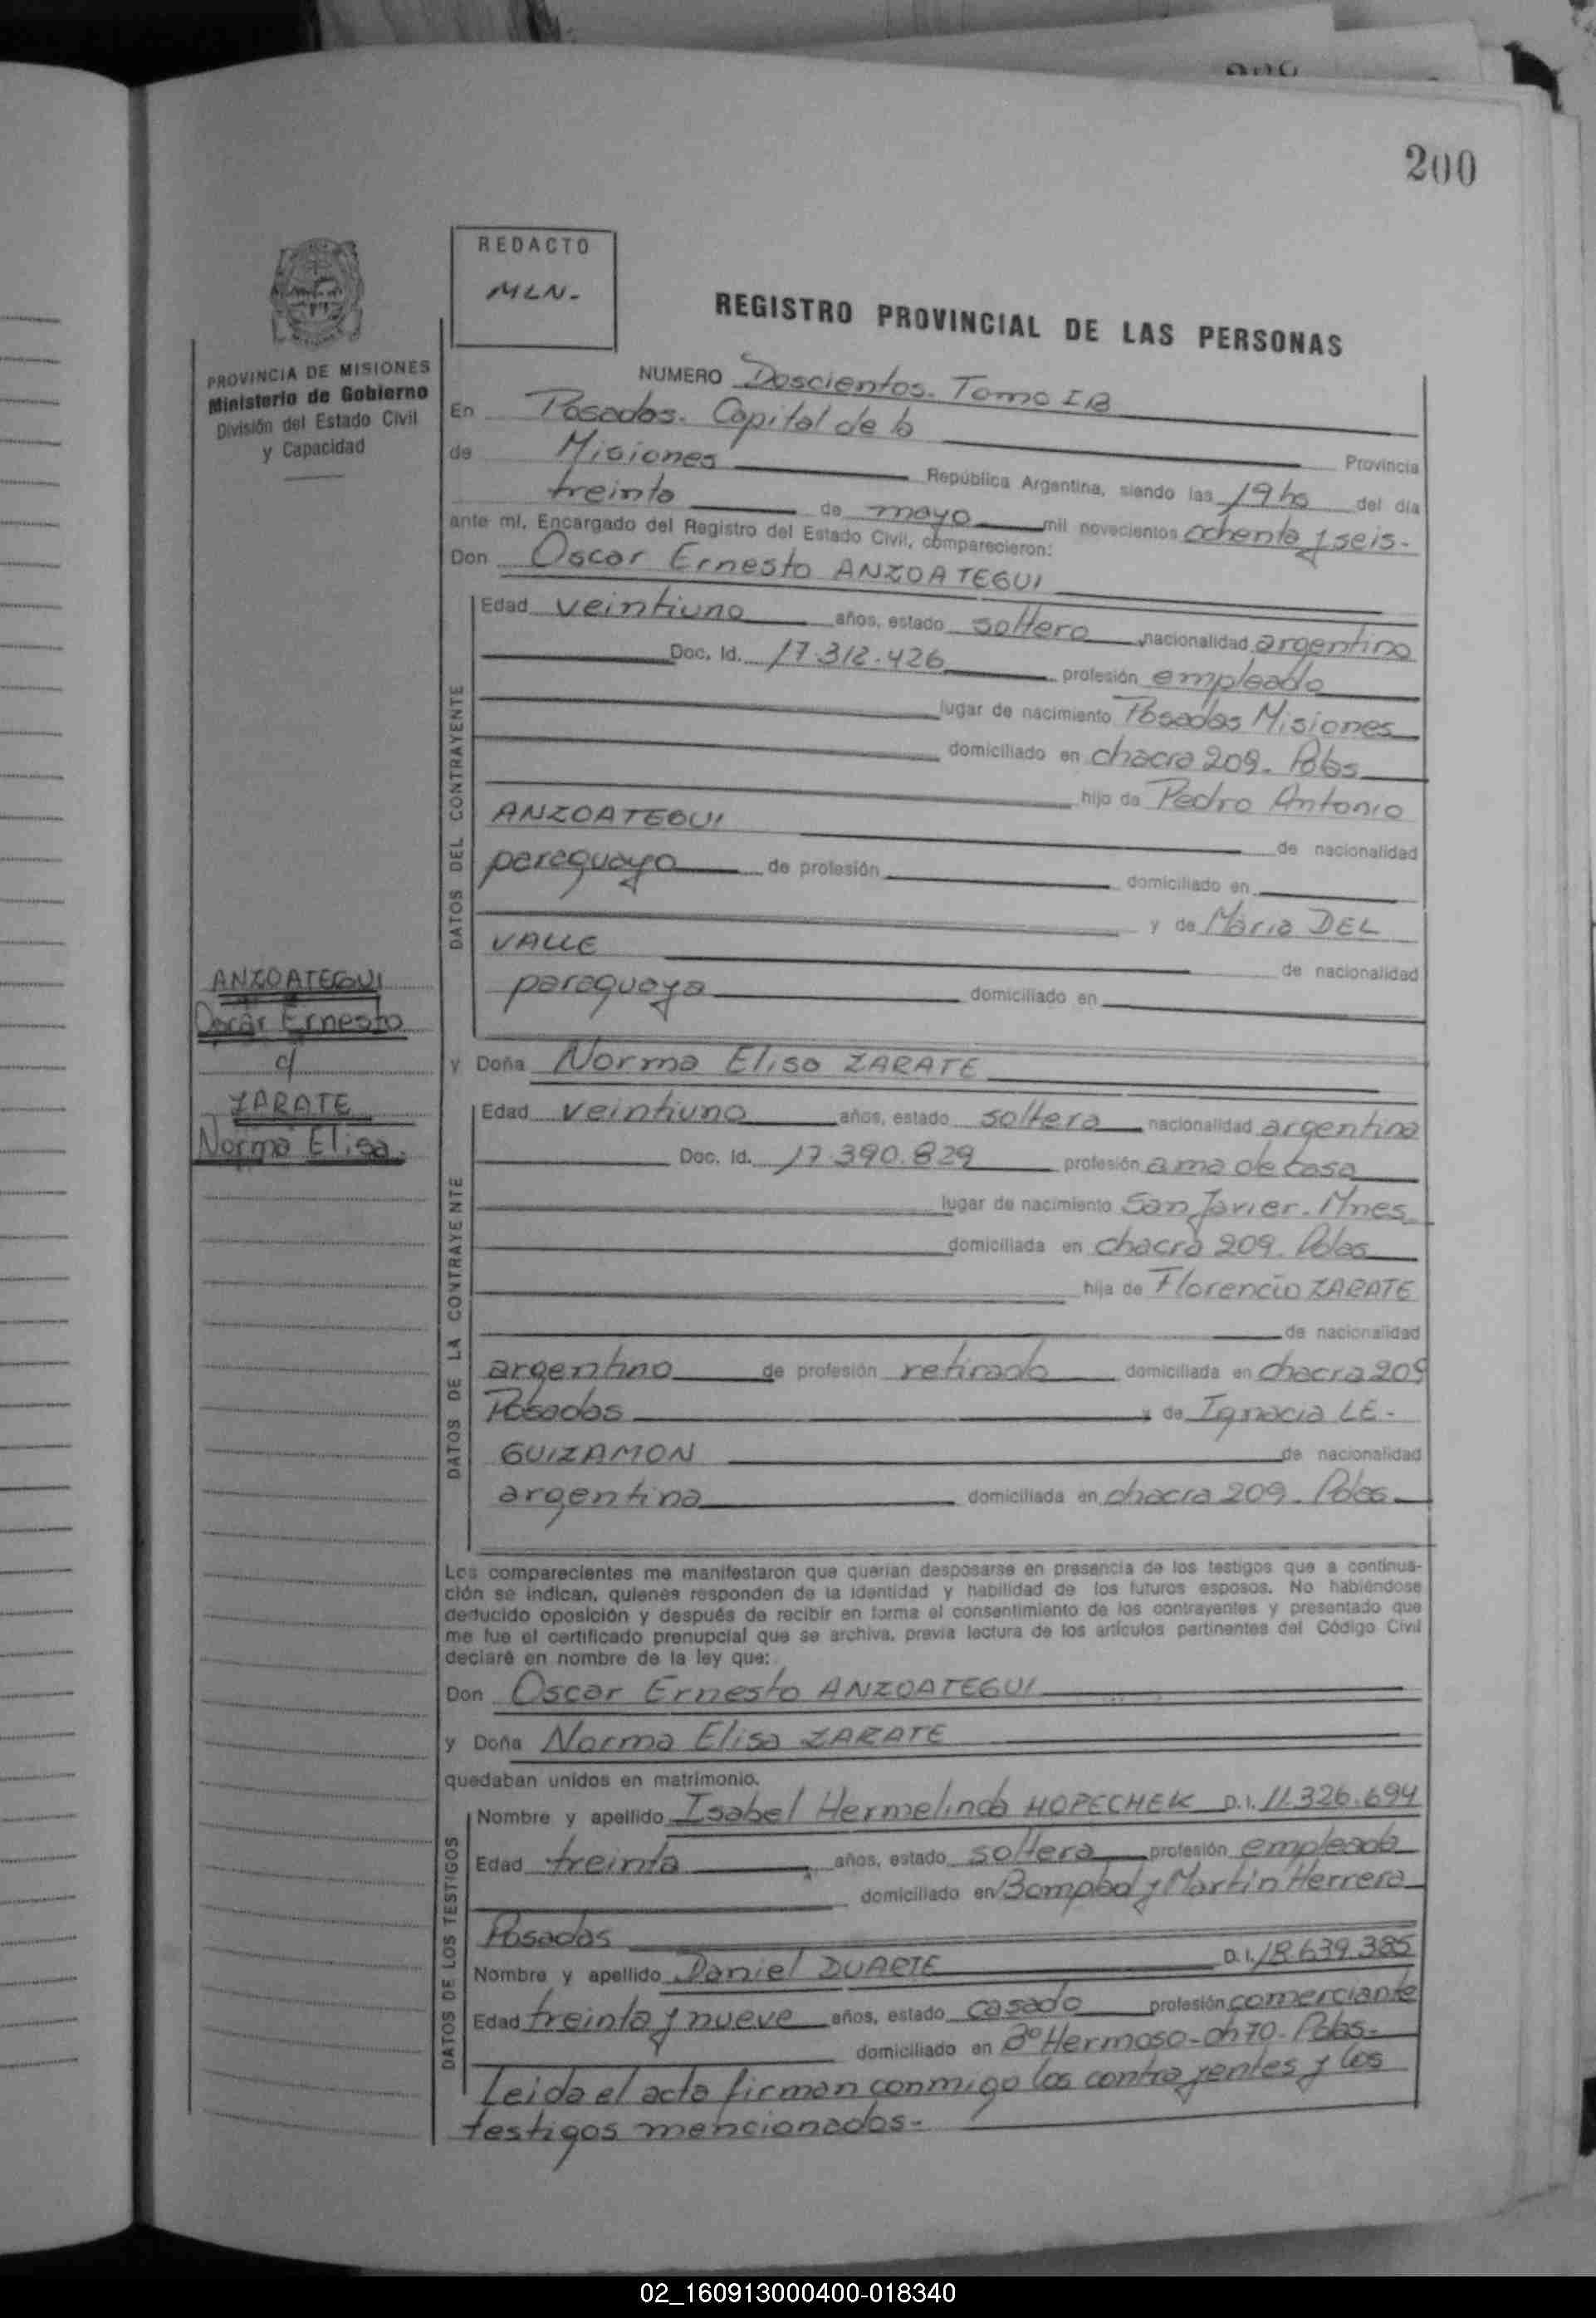 200
REDACTO
MLN.-
REGISTRO PROVINCIAL DE LAS PERSONAS
PROVINCIA DE MISIONES
Ministerio de Gobierno
División del Estado Civil
y Capacidad
NUMERO Doscientos. Tomo IB
En Posadas. Capital de la Provincia
de Misiones República Argentina, siendo las 19 hs del día
treinta de mayo mil novecientos ochenta y seis.-
ante mí, Encargado del Registro del Estado Civil, comparecieron:
Don Oscar Ernesto ANZOATEGUI
DATOS DEL CONTRAYENTE
Edad veintiuno años, estado soltero nacionalidad argentino
Doc. Id. 17.312.426 profesión empleado
lugar de nacimiento Posadas Misiones
domiciliado en chacra 209. Pdas
hijo de Pedro Antonio
ANZOATEGUI de nacionalidad
paraguayo de profesión domiciliado en
y de María DEL
VALLE de nacionalidad
paraguaya domiciliado en
ANZOATEGUI
Oscar Ernesto
c/
ZARATE
Norma Elisa.
y Doña Norma Elisa ZARATE
DATOS DE LA CONTRAYENTE
Edad veintiuno años, estado soltera nacionalidad argentina
Doc. Id. 17.390.829 profesión ama de casa
lugar de nacimiento San Javier. Mnes
domiciliada en chacra 209. Pdas
hija de Florencio ZARATE
de nacionalidad
argentino de profesión retirado domiciliada en chacra 209
Posadas y de Ignacia LE-
GUIZAMON de nacionalidad
argentina domiciliada en chacra 209. Pdas
Los comparecientes me manifestaron que querían desposarse en presencia de los testigos que a continua-
ción se indican, quienes responden de la identidad y habilidad de los futuros esposos. No habiéndose
deducido oposición y después de recibir en forma el consentimiento de los contrayentes y presentado que
me fue el certificado prenupcial que se archiva, previa lectura de los artículos pertinentes del Código Civil
declaré en nombre de la ley que:
Don Oscar Ernesto ANZOATEGUI
y Doña Norma Elisa ZARATE
quedaban unidos en matrimonio.
DATOS DE LOS TESTIGOS
Nombre y apellido Isabel Hermelinda HOPECHEK D.I. 11.326.694
Edad treinta años, estado soltera profesión empleada
domiciliado en Bompland y Martin Herrera
Posadas
Nombre y apellido Daniel DUARTE D.I. 18.639.385
Edad treinta y nueve años, estado casado profesión comerciante
domiciliado en Bº Hermoso-ch 70. Pdas.-
Leida el acta firman conmigo los contrayentes y los
testigos mencionados.-
02_160913000400-018340